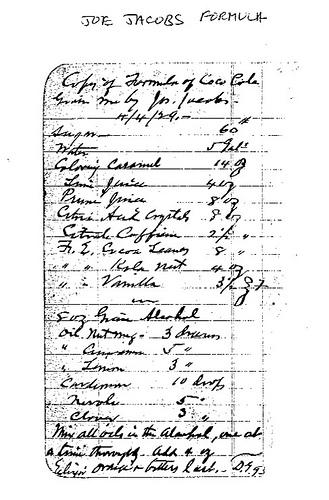 JOE JACOBS FORMULA
Copy of Formula of Coco Cola
Given me by Jos. Jacobs -
4/4/29. -
Sugar 60 #
Water 5 Gals
Coloring Caramel 14 oz
Lime Juice 4 oz
Prune Juice 8 oz
Citric Acid Crystals 8 oz
Citrate Caffeine 2½ "
Fl. E. Cocoa Leaves 8 "
" " Kola Nut 4 oz
" " Vanilla 3½
8 oz Grain Alcohol
Oil Nutmeg - 3 Drams
" Cinnamon 5 "
" Lemon 3 "
Cardamon 10 drops
Nerole 5 "
Cloves 3 "
Mix all oils in the Alcohol, one at
a time thoroughly. Add 4 oz
Elixir orange & bitters last. -